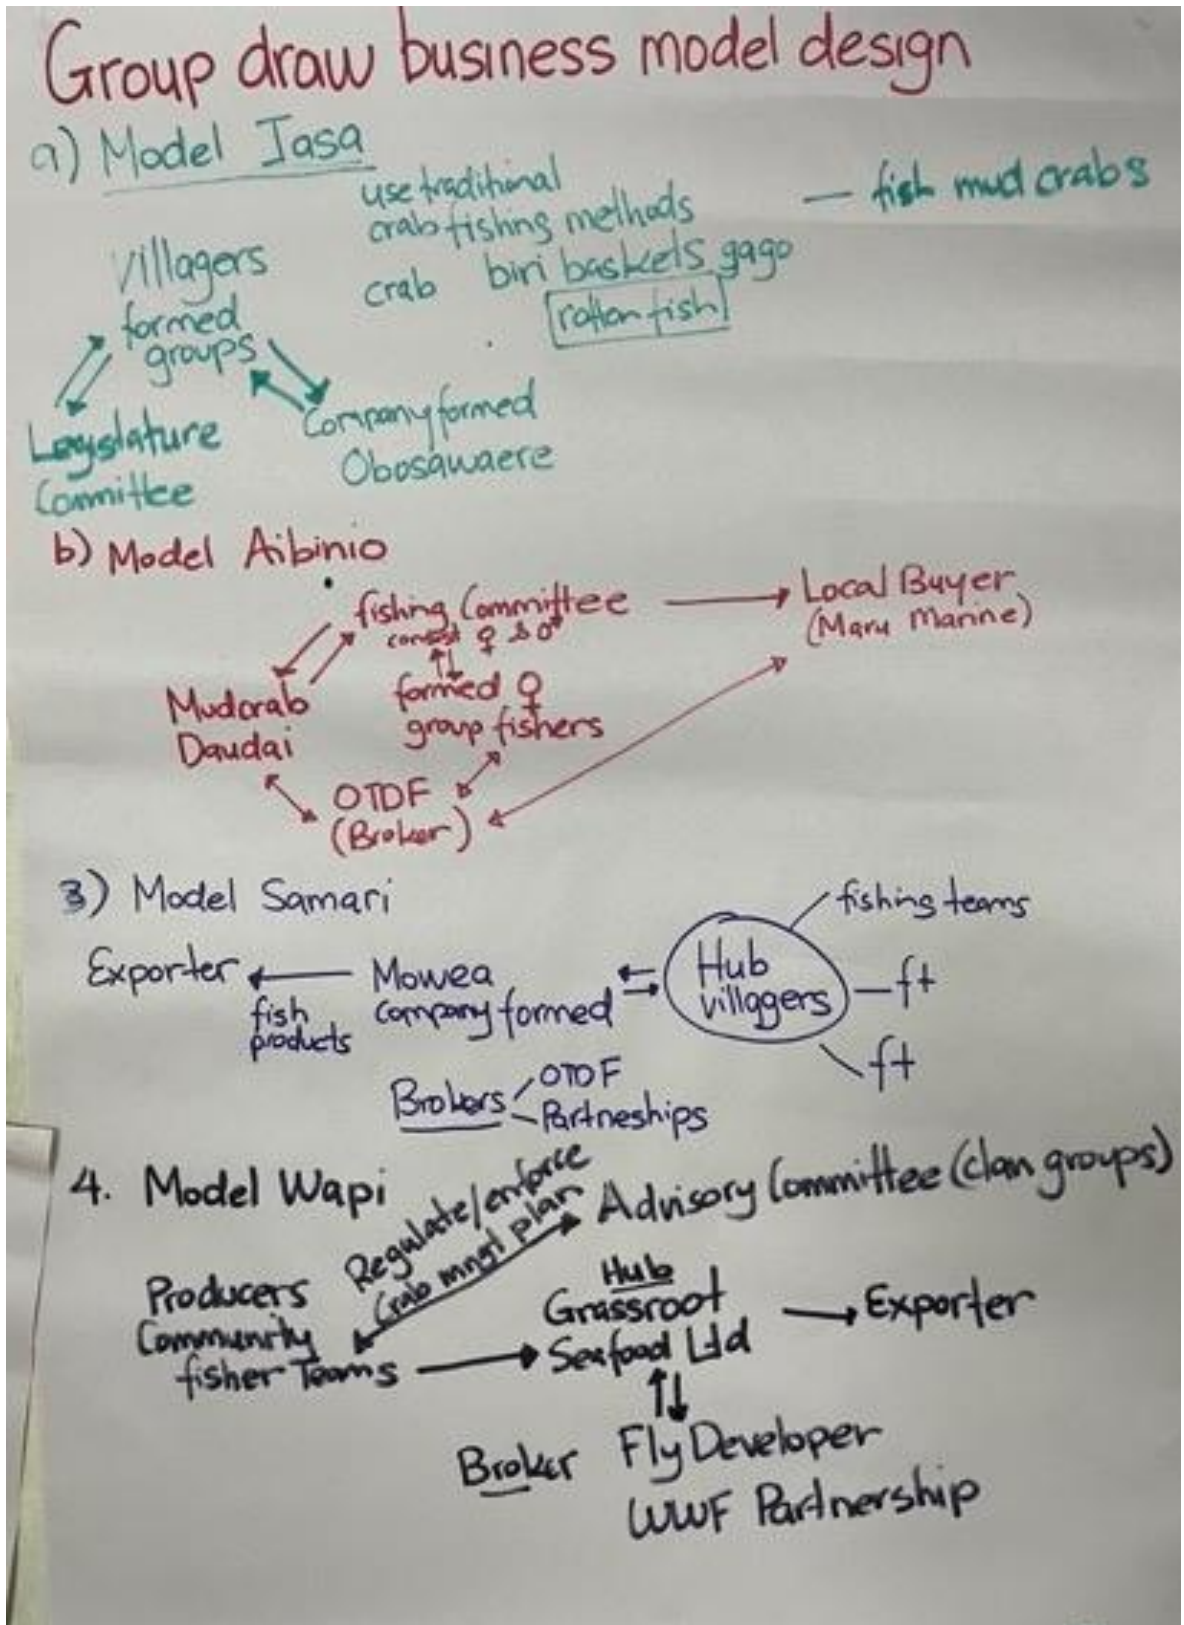 Group draw business model design
a) Model Iasa
use traditional
crab fishing methods
— fish mud crabs
crab biri baskets gago
rattan fish
Villagers
formed
groups
Legslature
Committee
Company formed
Obosawaere
b) Model Aibinio
fishing Committee
consist ♀ & ♂
Local Buyer
(Maru Marine)
Mudcrab
Daudai
formed ♀
group fishers
OTDF
(Broker)
3) Model Samari
fishing teams
Exporter
fish
products
Mowea
company formed
Hub
villagers
ft
ft
Brokers
OTDF
Partneships
4. Model Wapi
Regulate/enforce
Crab mngt plan
Advisory Committee (clan groups)
Producers
Community
fisher Teams
Hub
Grassroot
Seafood Ltd
Exporter
Broker
Fly Developer
WWF Partnership